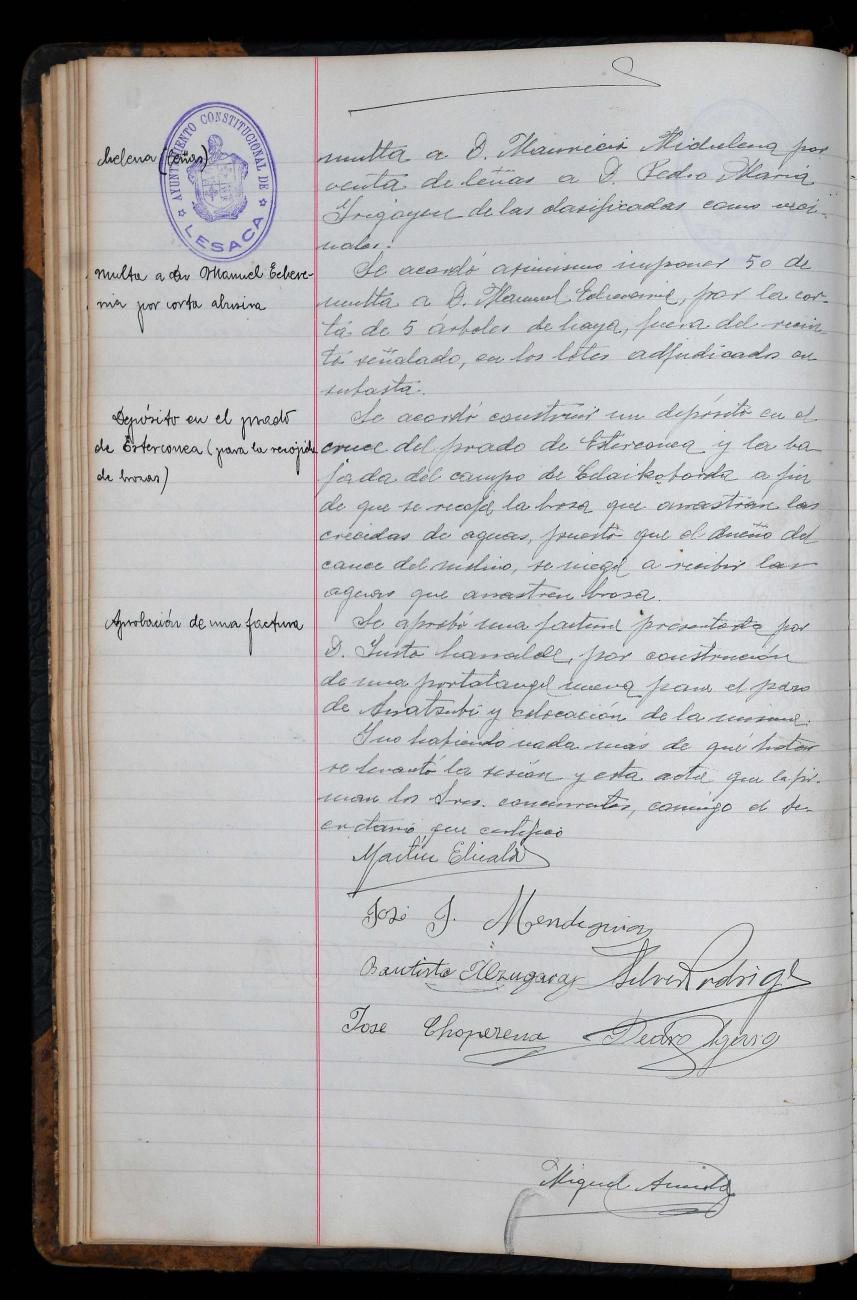 chelena (leñas)
AYUNTAMIENTO CONSTITUCIONAL DE
LESACA
multa a D. Mauricio Michelena por
venta de leñas a D. Pedro María
Irigoyen de las clasificadas como veci-
nales.
multa a Manuel Echeve-
rria por corta abusiva
Se acordó asimismo imponer 50 de
multa a D. Manuel Echeverria, por la cor-
ta de 5 árboles de haya, fuera del recin-
to señalado, en los lotes adjudicados en
subasta.
Depósito en el prado
de Esterconea (para la recojida
de brozas)
Se acordó construir un depósito en el
cruce del prado de Esterconea y la ba
jada del campo de Elaikoborda a fin
de que se recoja la brosa que arrastran las
crecidas de aguas, puesto que el dueño del
cauce del molino, se niega a recibir las
aguas que arrastren brosa.
Aprobación de una factura
Se aprobó una factura presentada por
D. Justo Larralde, por construcción
de una portatangel nueva para el paso
de y colocación de la misma.
Y no habiendo nada más de qué tratar
se levantó la sesión y esta acta que la fir-
man los Sres. concurrentes, conmigo el Se-
cretario que certifico
Martin Elicalde
José J. Mendiguia
Bautista Alzugaray Silver Rodrigz
Jose Choperena Pedro Ygara
Miguel